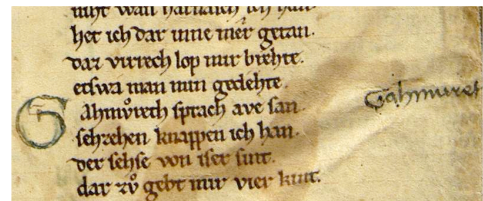 het ich dar inne mer getan.
daz virrech lop mir brehte.
etswa man min gedehte.
Gahmuͦrech sprach ave san.
sehzehen knappen ich han.
der sehse von iser sint.
dar zuͦ gebt mir vier kint.
Gahmuret